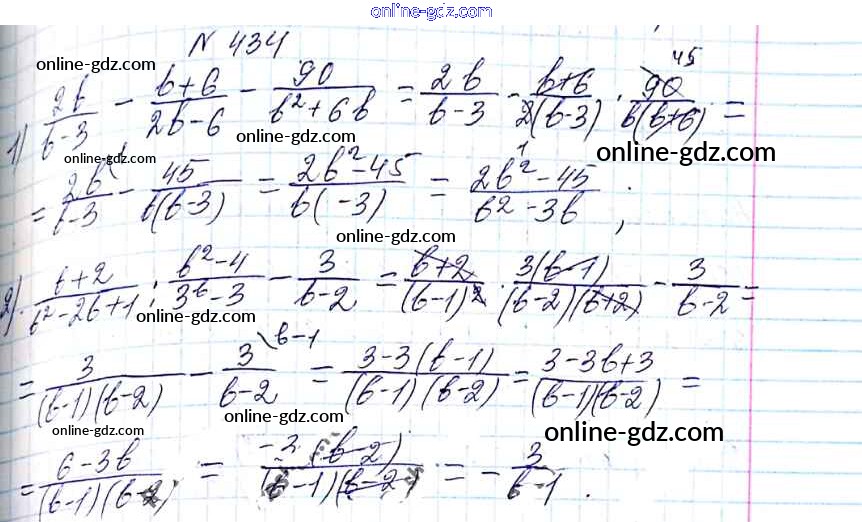 online-gdz.com
N 434
online-gdz.com
1) 2b/(b-3) - (b+6)/(2b-6) - 90/(b²+6b) = 2b/(b-3) - (b+6)/(2(b-3)) · 90/(b(b+6)) = 45
online-gdz.com
online-gdz.com
online-gdz.com
= 2b/(b-3) - 45/(b(b-3)) = (2b²-45)/(b( -3)) = (2b²-45)/(b²-3b) ;
online-gdz.com
2) (b+2)/(b²-2b+1) : (b²-4)/(3b-3) - 3/(b-2) = (b+2)/(b-1)² · 3(b-1)/((b-2)(b+2)) - 3/(b-2) =
online-gdz.com
= 3/((b-1)(b-2)) - 3/(b-2) \b-1 = (3-3(b-1))/((b-1)(b-2)) = (3-3b+3)/((b-1)(b-2)) =
online-gdz.com
online-gdz.com
online-gdz.com
= (6-3b)/((b-1)(b-2)) = -3(b-2)/((b-1)(b-2)) = - 3/(b-1) .